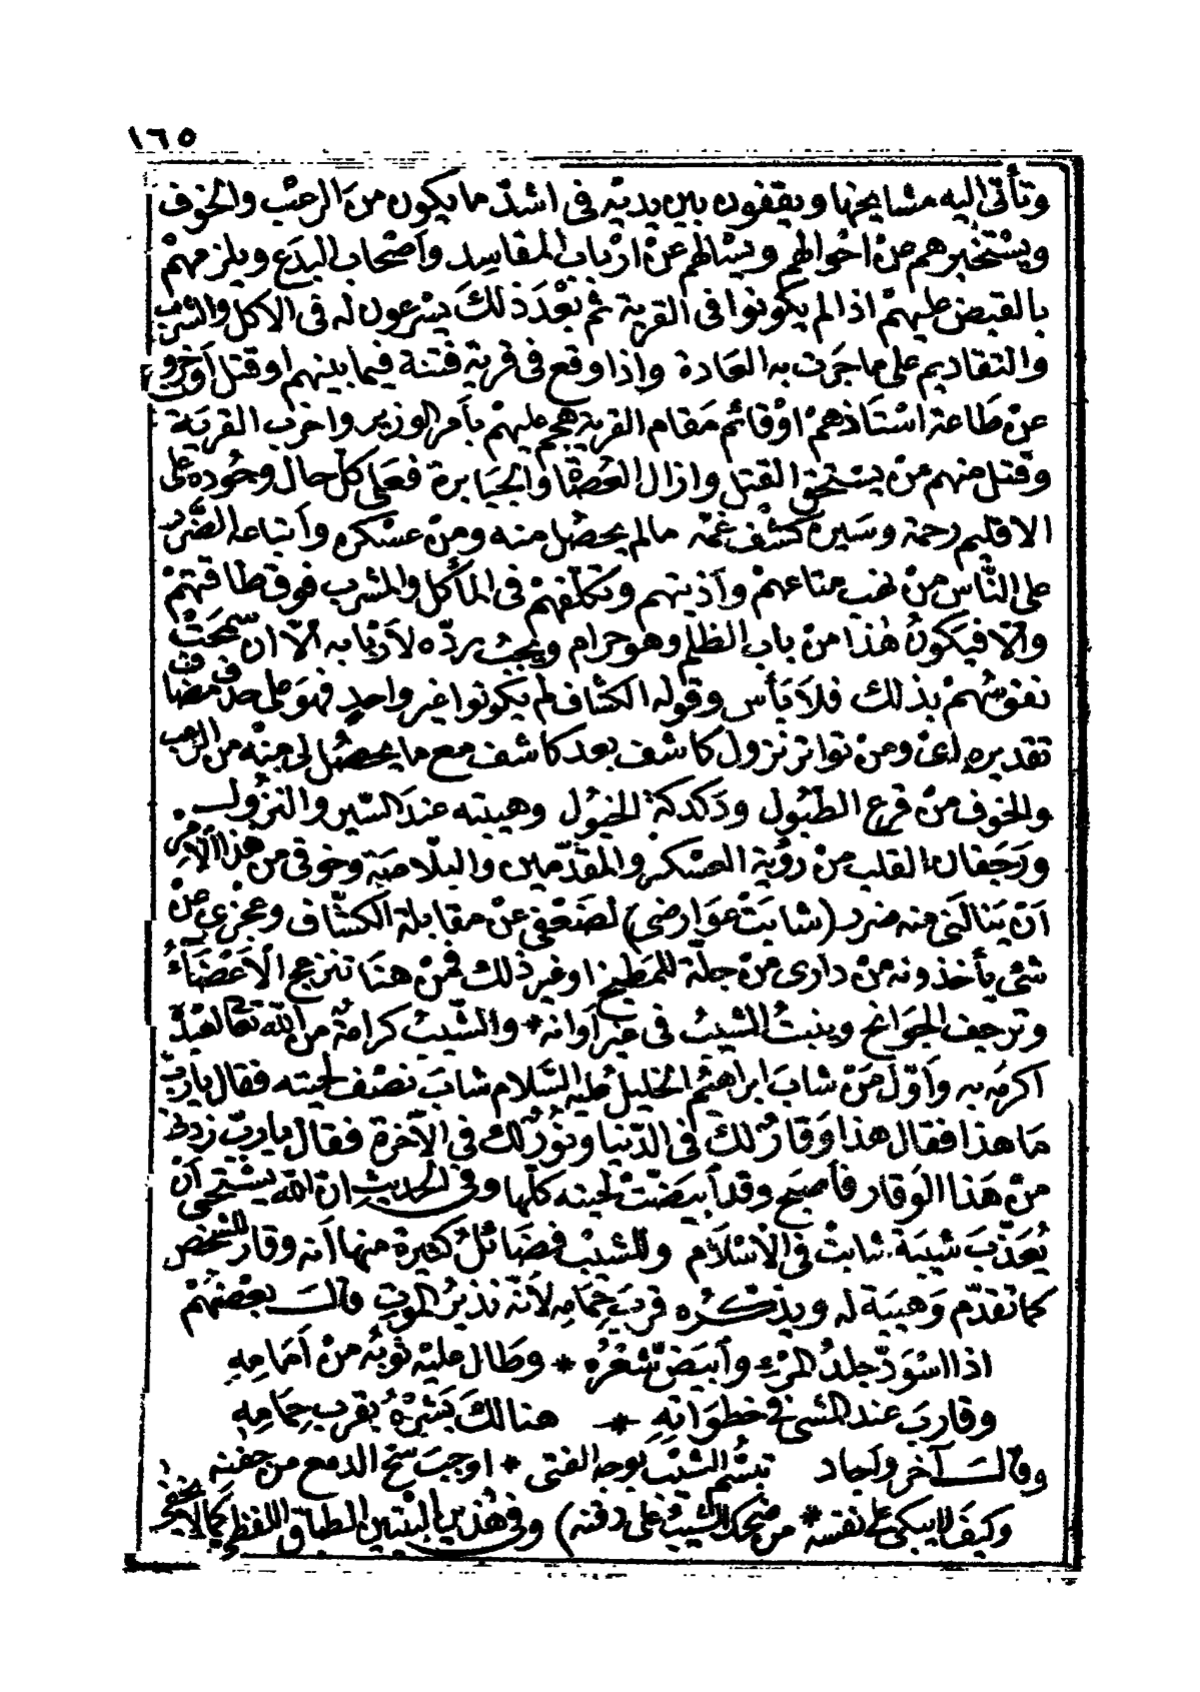 ١٦٥
وتأتى اليه مشايخها ويقفون بين يديه فى اشدّ ما يكون من الرعب والخوف
ويستخبرهم عن احوالهم ويسالهم عن ارباب المفاسد واصحاب البدع ويلزمهم
بالقبض عليهم اذا لم يكونوا فى القرية ثم بعد ذلك يسرعون له فى الاكل والشرب
والتقاديم على ما جرت به العادة واذا وقع فى قرية فتنة فيما بينهم او قتل او خروج
عن طاعة استاذهم او قائم مقام القرية هجم عليهم بأمر الوزير واخرب القرية
وقتل منهم من يستحق القتل وازال العصاة والجبابرة فعلى كل حال وجوده على
الاقليم رحمة وسيره كشف غمّة مالم يحصل منه ومن عسكره وأتباعه الضّرر
على النّاس من نهب متاعهم وأذيتهم وتكلّفهم فى المأكل والمشرب فوق طاقتهم
والّا فيكون هذا من باب الظلم وهو حرام ويجب ردّه لأربابه الّا ان سمحت
نفوسهم بذلك فلا بأس وقوله الكشاف لم يكونوا غير واحد فهو على حذف مضاف
تقديره اعنى ومن تواتر نزول كاشف بعد كاشف مع ما يحصل لى منه من الرعب
والخوف من قرع الطبول ودكدكة الخيول وهيبته عند السّير والنزول
ورجفان القلب من رؤية العسكر والمقدّمين والبلّاصيّة وخوفى من هذا الامر من
أن ينالنى منه ضرر (شابت عوارضى) لضعفى عن مقابلة الكشّاف وعجزى عن
شئ يأخذونه من دارى من جلّة للمطبخ او غير ذلك فمن هنا تنزعج الأعضاء
وترجف الجوانح وينبت الشيب فى غير أوانه * والشّيب كرامة من الله تعالى لعبد
اكرمه به وأوّل من شاب ابراهيم الخليل عليه السّلام شاب نصف لحيته فقال يارب
ما هذا فقال هذا وقار لك فى الدّنيا ونور لك فى الآخرة فقال يا ربّ زدنى
من هذا الوقار فأصبح وقد أبيضّت لحيته كلّها وفى الحديث انّ الله يستحى أن
يعذّب شيبة شابت فى الاسلام وللشيب فضائل كثيرة منها أنه وقار للشخص
كما تقدّم وهيبة له ويذكّره قرب حمامه لأنّه نذير الموت وقال بعضهم
اذا اسودّ جلد المرء وأبيضّ شعره * وطال عليه ثوبه من أمامه
وقارب عند المشى فى خطواته * هنالك بشّره بقرب حمامه
وقال آخر وأجاد تبسّم الشّيب بوجه الفتى * اوجب سحّ الدمع من جفنه
وكيف لا يبكى على نفسه * من ضحك الشّيب على ذقنه) وفى هذين البيتين الطباق اللفظى كما لا يخفى